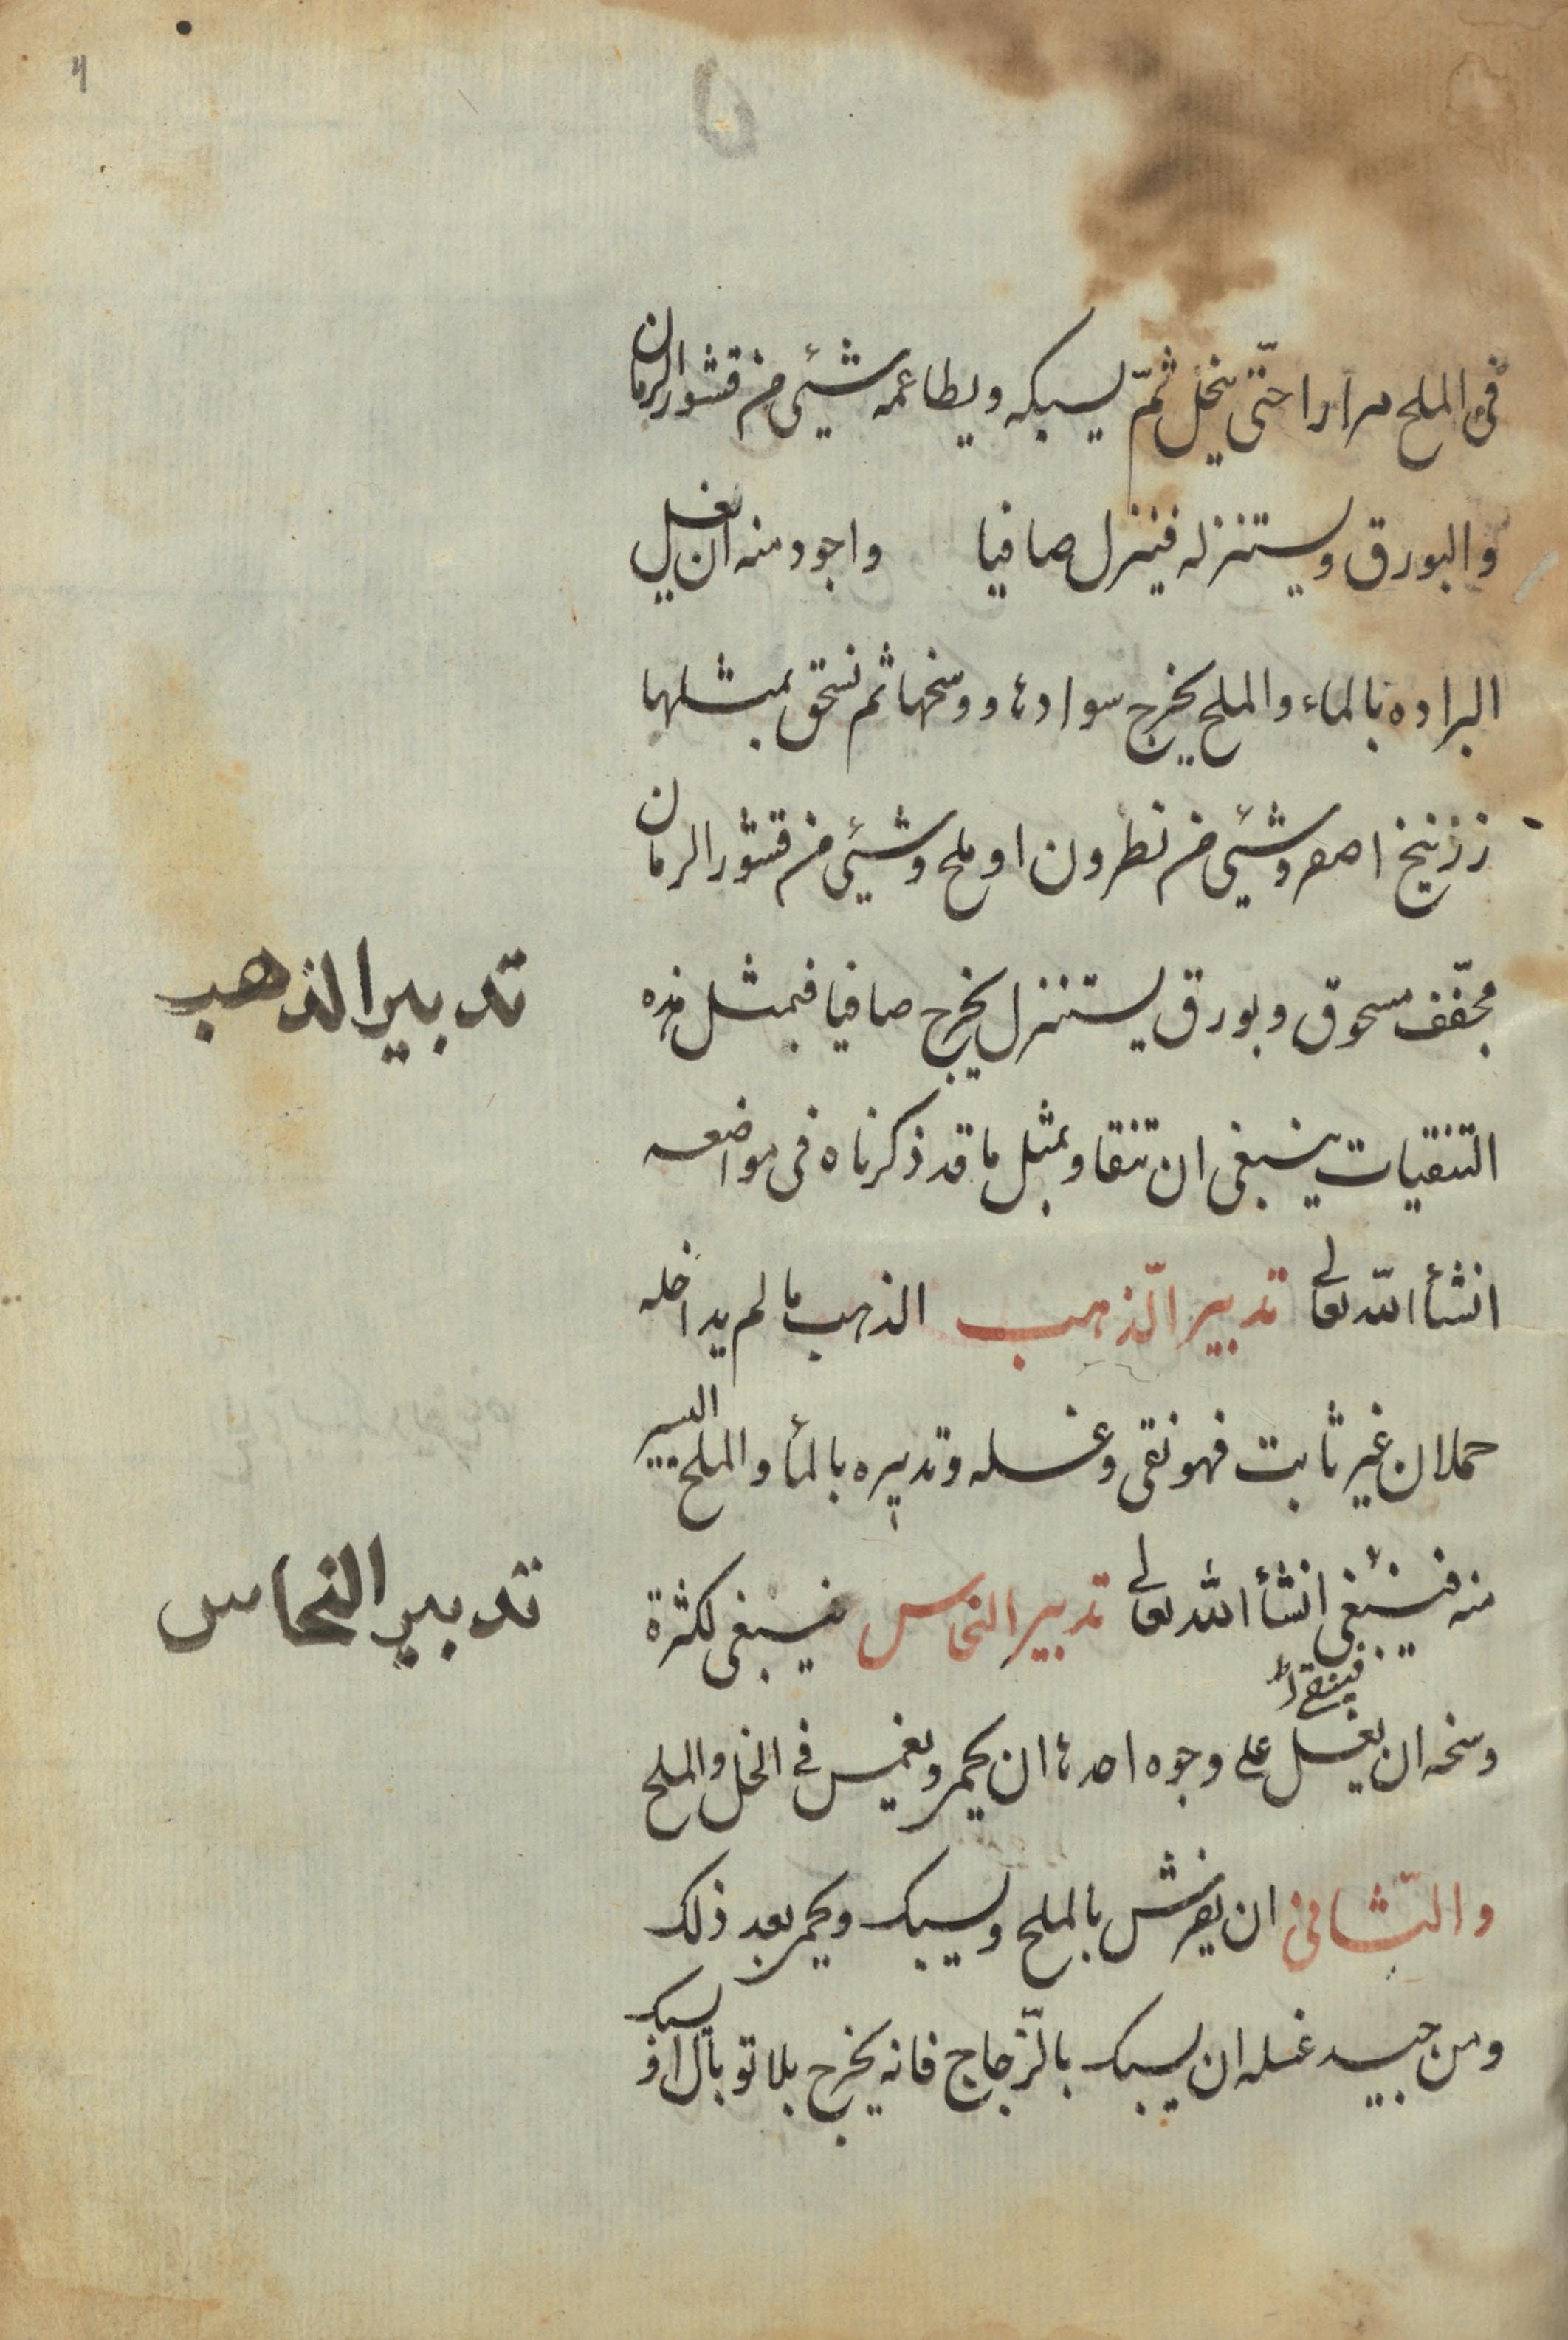 فى الملح مرارا حتّى ينحل ثمّ يسبكه ويطاعمه شيئى من قشور الرمان
والبورق ويستنزله فينزل صافيا واجود منه ان يغسل
البراده بالماء والملح يخرج سوادها ووسخها ثم نسحق بمثلها
زرنيخ اصفر وشيئى من نطرون او ملح وشيئى من قشور الرمان
مجفّف مسحوق وبورق يستنزل يخرج صافيا فبمثل هذه
تدبير الذهب
التنقيات ينبغى ان تنقا وبمثل ما قد ذكرناه فى مواضعه
انشأ اللّه تعالى تدبير الّذهب الذهب ما لم يداخله
حملان غير ثابت فهو نقى وغسله وتدبيره بالمأ والملح اليسير
منه فينبغى انشأ اللّه تعالى تدبير النحاس ينبغى لكثرة
تدبير النحاس
فينقى
وسخه ان يغسل على وجوه احدها ان يحمر ويغمس فى الخل والملح
والثّانى ان يفرش بالملح ويسبك ويحمر بعد ذلك
ومن جيد غسله ان يسبك بالّزجاج فانه يخرج بلا توبال اذ يسبك